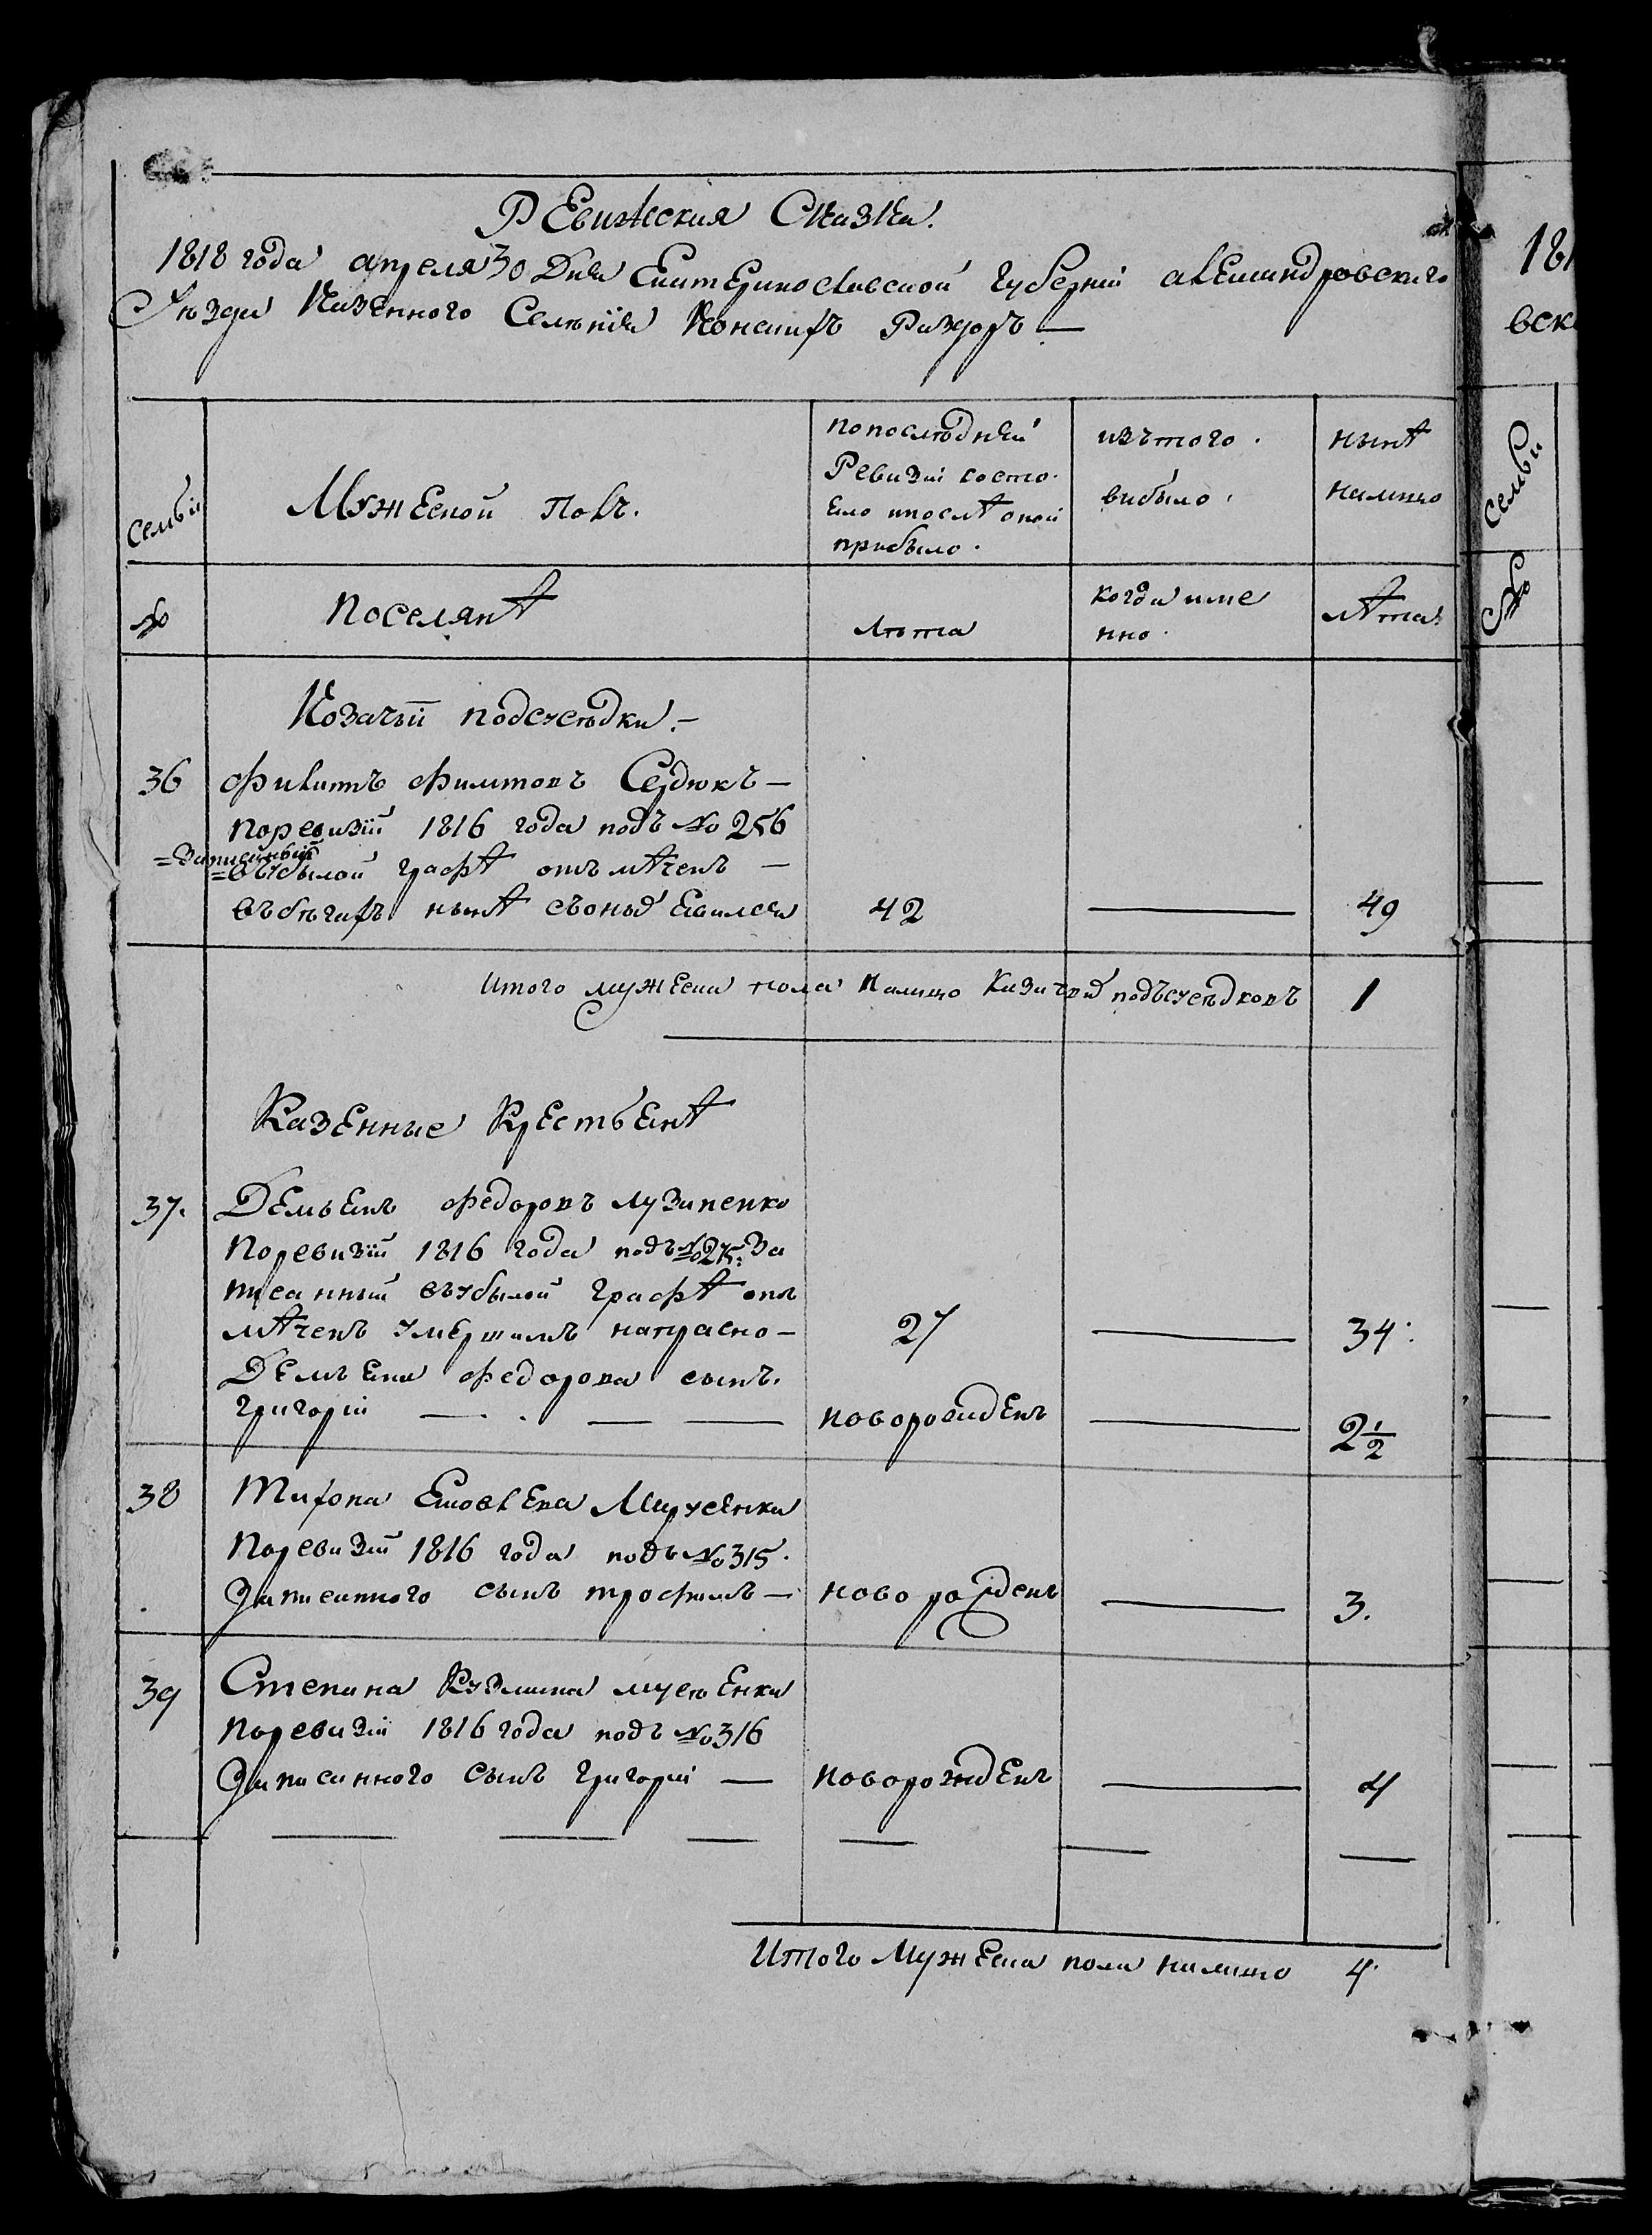 Ревижская Сказка.
1818 года апреля 30 Дня Екатеринославской Губерніи александровскаго
Уѣзда Казенного Селенія Конскихъ Раздоръ —
181
вск
семьи
Мужеской полъ.
попослѣдней
Ревизіи состо
яло ипослѣ оной
прибыло.
изътого
выбыло
нынѣ
налицо
семьи
№
поселянѣ
лѣта
когда име
нно
лѣта
№
Козачьи подсусѣдки —
36 Филипъ Филиповъ Сердюкъ —
поревизіи 1816 года подъ № 256
=Записанный
=въубылой графѣ отъмѣченъ —
въбѣгахъ нынѣ съоныхъ явился 42 — 49
Итого мужеска пола налицо казачьихъ подъсусѣдковъ 1
Казенные Крестьянѣ
37. Демьянъ Федоровъ лузаненко
поревизіи 1816 года подъ № 275: За
писанный въубылой графѣ отъ
мѣченъ умершимъ напрасно — 27 — 34
Демьяна Федорова сынъ
григорій — — — новорожденъ — 2 1/2
38 Яковлева
поревизіи 1816 года подъ № 315.
Записанного сынъ трофимъ — ново рожденъ — 3.
39 Степана Кузмина
поревизіи 1816 года подъ № 316
Записанного сынъ григорій — новорожденъ — 4
Итого Мужеска пола налицо 4